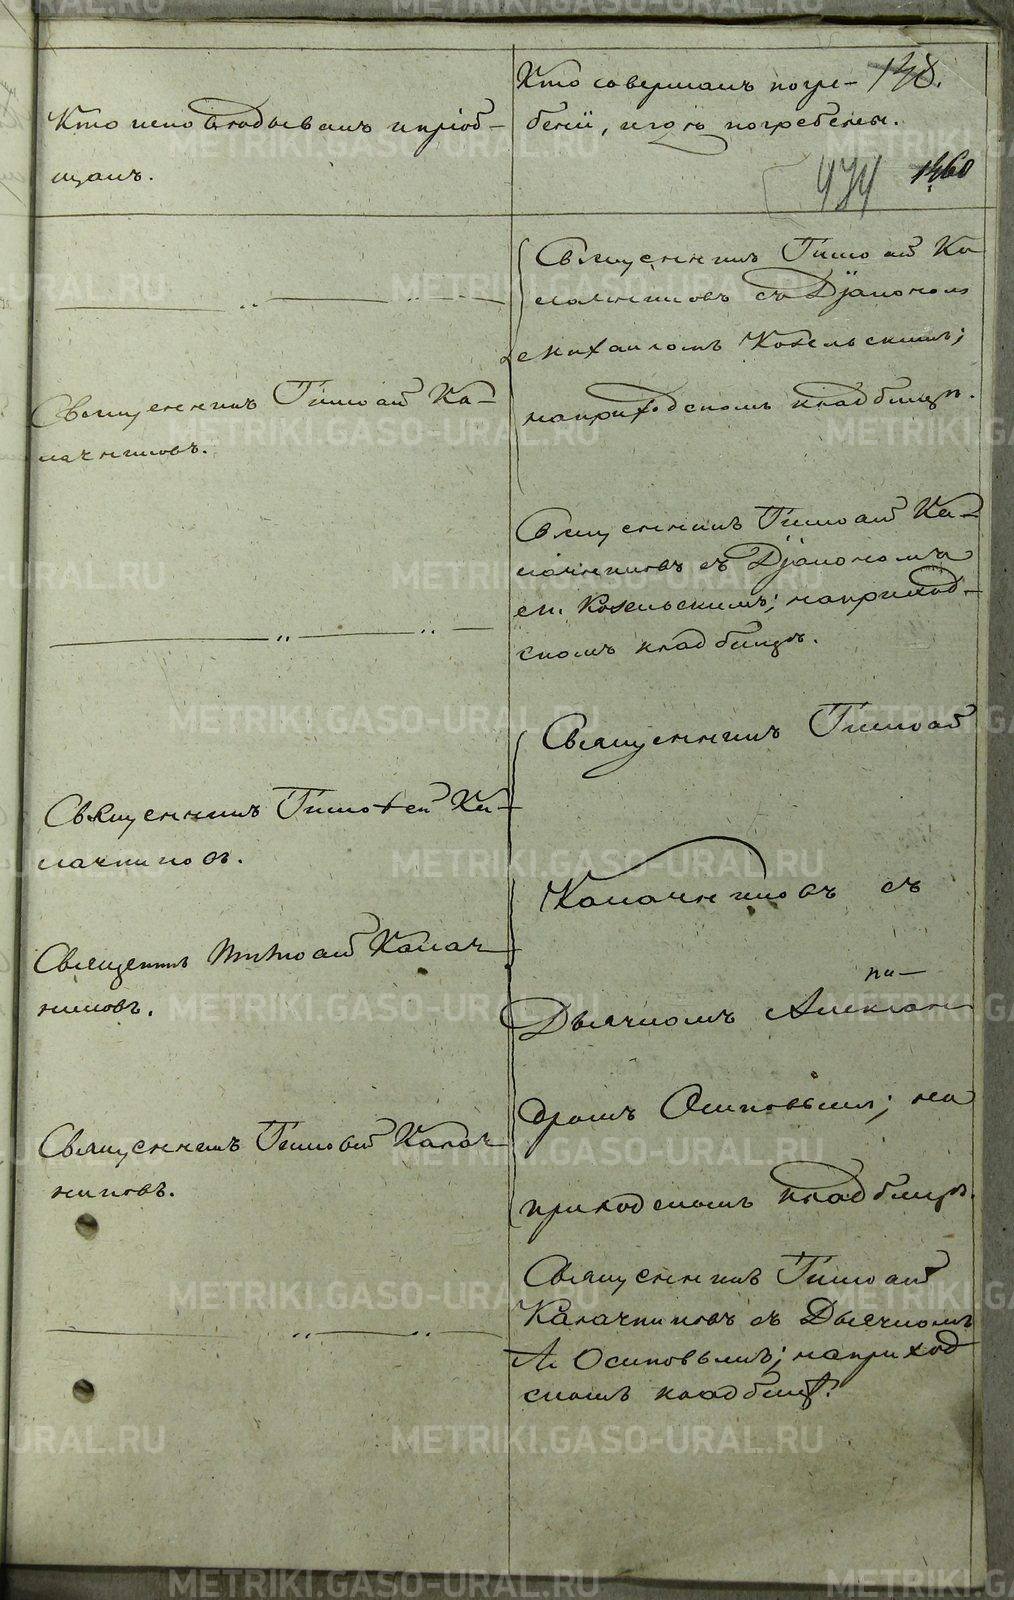 Кто исповѣдывалъ и пріоб-
щалъ.
Кто совершалъ погре-
беніи, и гдѣ погребены.
138.
474 1460
Священникъ Тимоѳей Ка-
лачниковъ съ Діакономъ
Михаиломъ Козельскимъ;
на приходскомъ кладбищѣ.
Священникъ Тимоѳей Ка-
лачниковъ.
Священникъ Тимоѳей Ка-
лачниковъ съ Діакономъ
М. Козельскимъ; на приход-
скомъ кладбищѣ.
Священникъ Тимоѳей Ка-
лачниковъ.
Священникъ Тимоѳей Калач
никовъ.
Священникъ Тимоѳей Калач
никовъ.
Священникъ Тимоѳей
Калачниковъ съ
Дьячкомъ Алексан
дромъ Осиповымъ; на
приходскомъ кладбищѣ.
Священникъ Тимоѳей
Калачниковъ съ Дьячкомъ
Ал. Осиповымъ; на приход
скомъ кладбищѣ.
METRIKI.GASO-URAL.RU